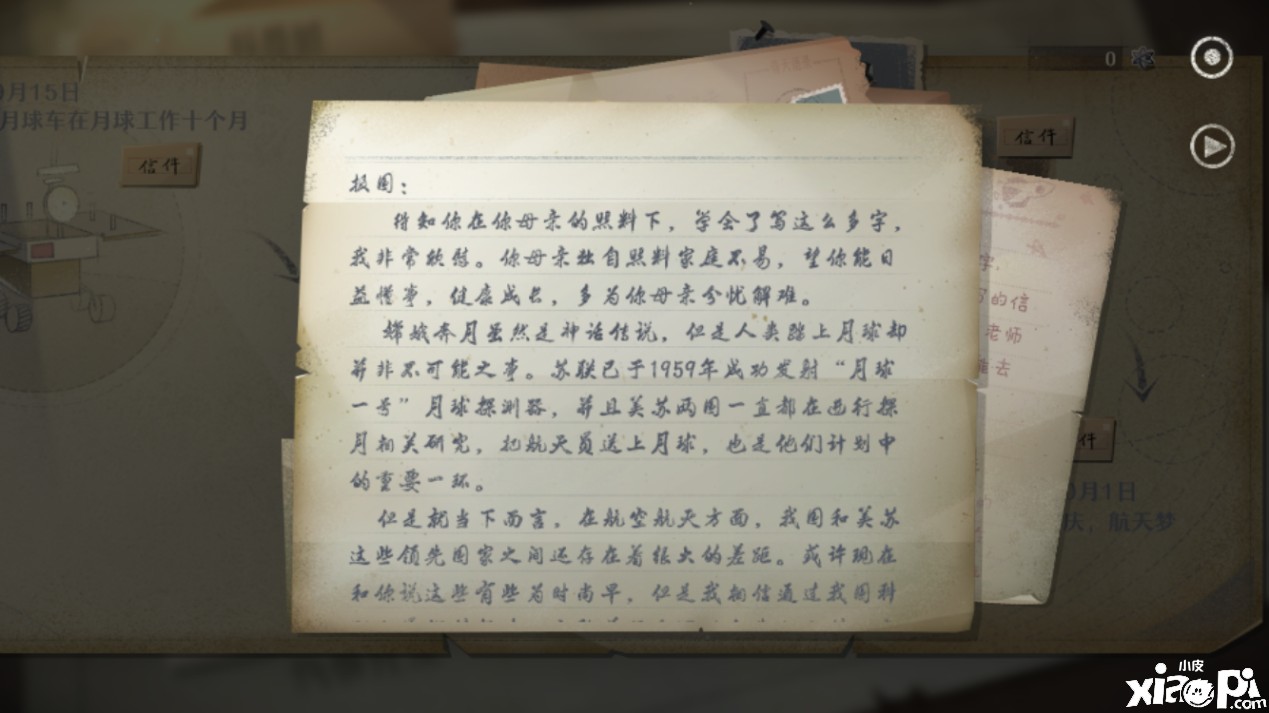 月15日
月球车在月球工作十个月
信件
0
信件
报国：
得知你在你母亲的照料下，学会了写这么多字，
我非常欣慰。你母亲独自照料家庭不易，望你能日
益懂事，健康成长，多为你母亲分忧解难。
嫦娥奔月虽然是神话传说，但是人类踏上月球却
并非不可能之事。苏联已于1959年成功发射“月球
一号”月球探测器，并且美苏两国一直都在进行探
月相关研究，把航天员送上月球，也是他们计划中
的重要一环。
但是就当下而言，在航空航天方面，我国和美苏
这些领先国家之间还存在着很大的差距。或许现在
和你说这些有些为时尚早，但是我相信通过我国科
字，
写的信
老师
去
件
月1日
庆，航天梦
小皮
xiaopi.com